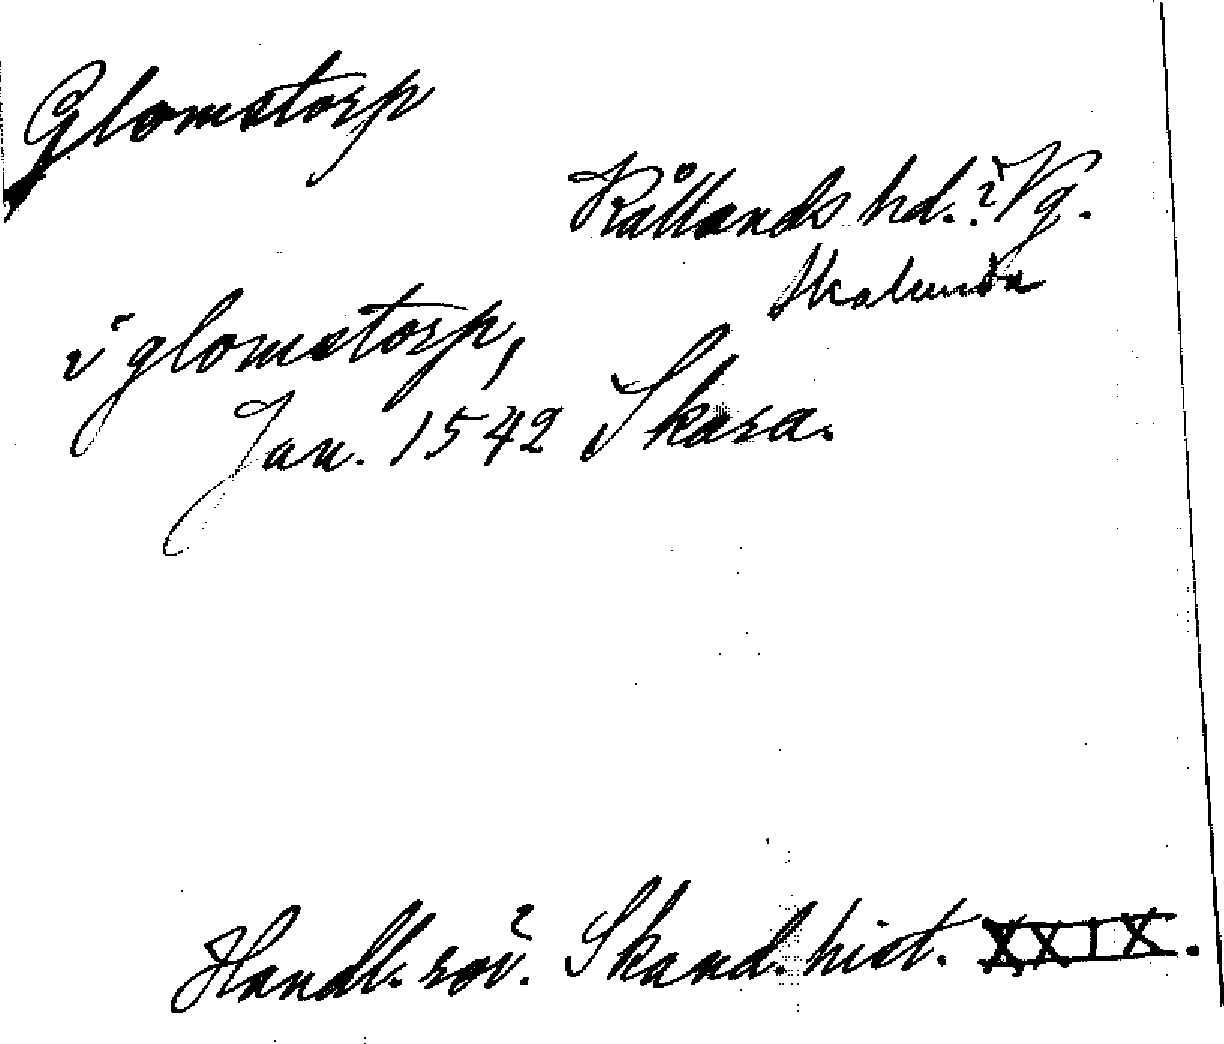 Glomstorp
Kållands hd.? Vg.
Skalunda
i glomstorp,
Jan. 1542 Skara.
Handl. rör. Skand. hist. XXIX.